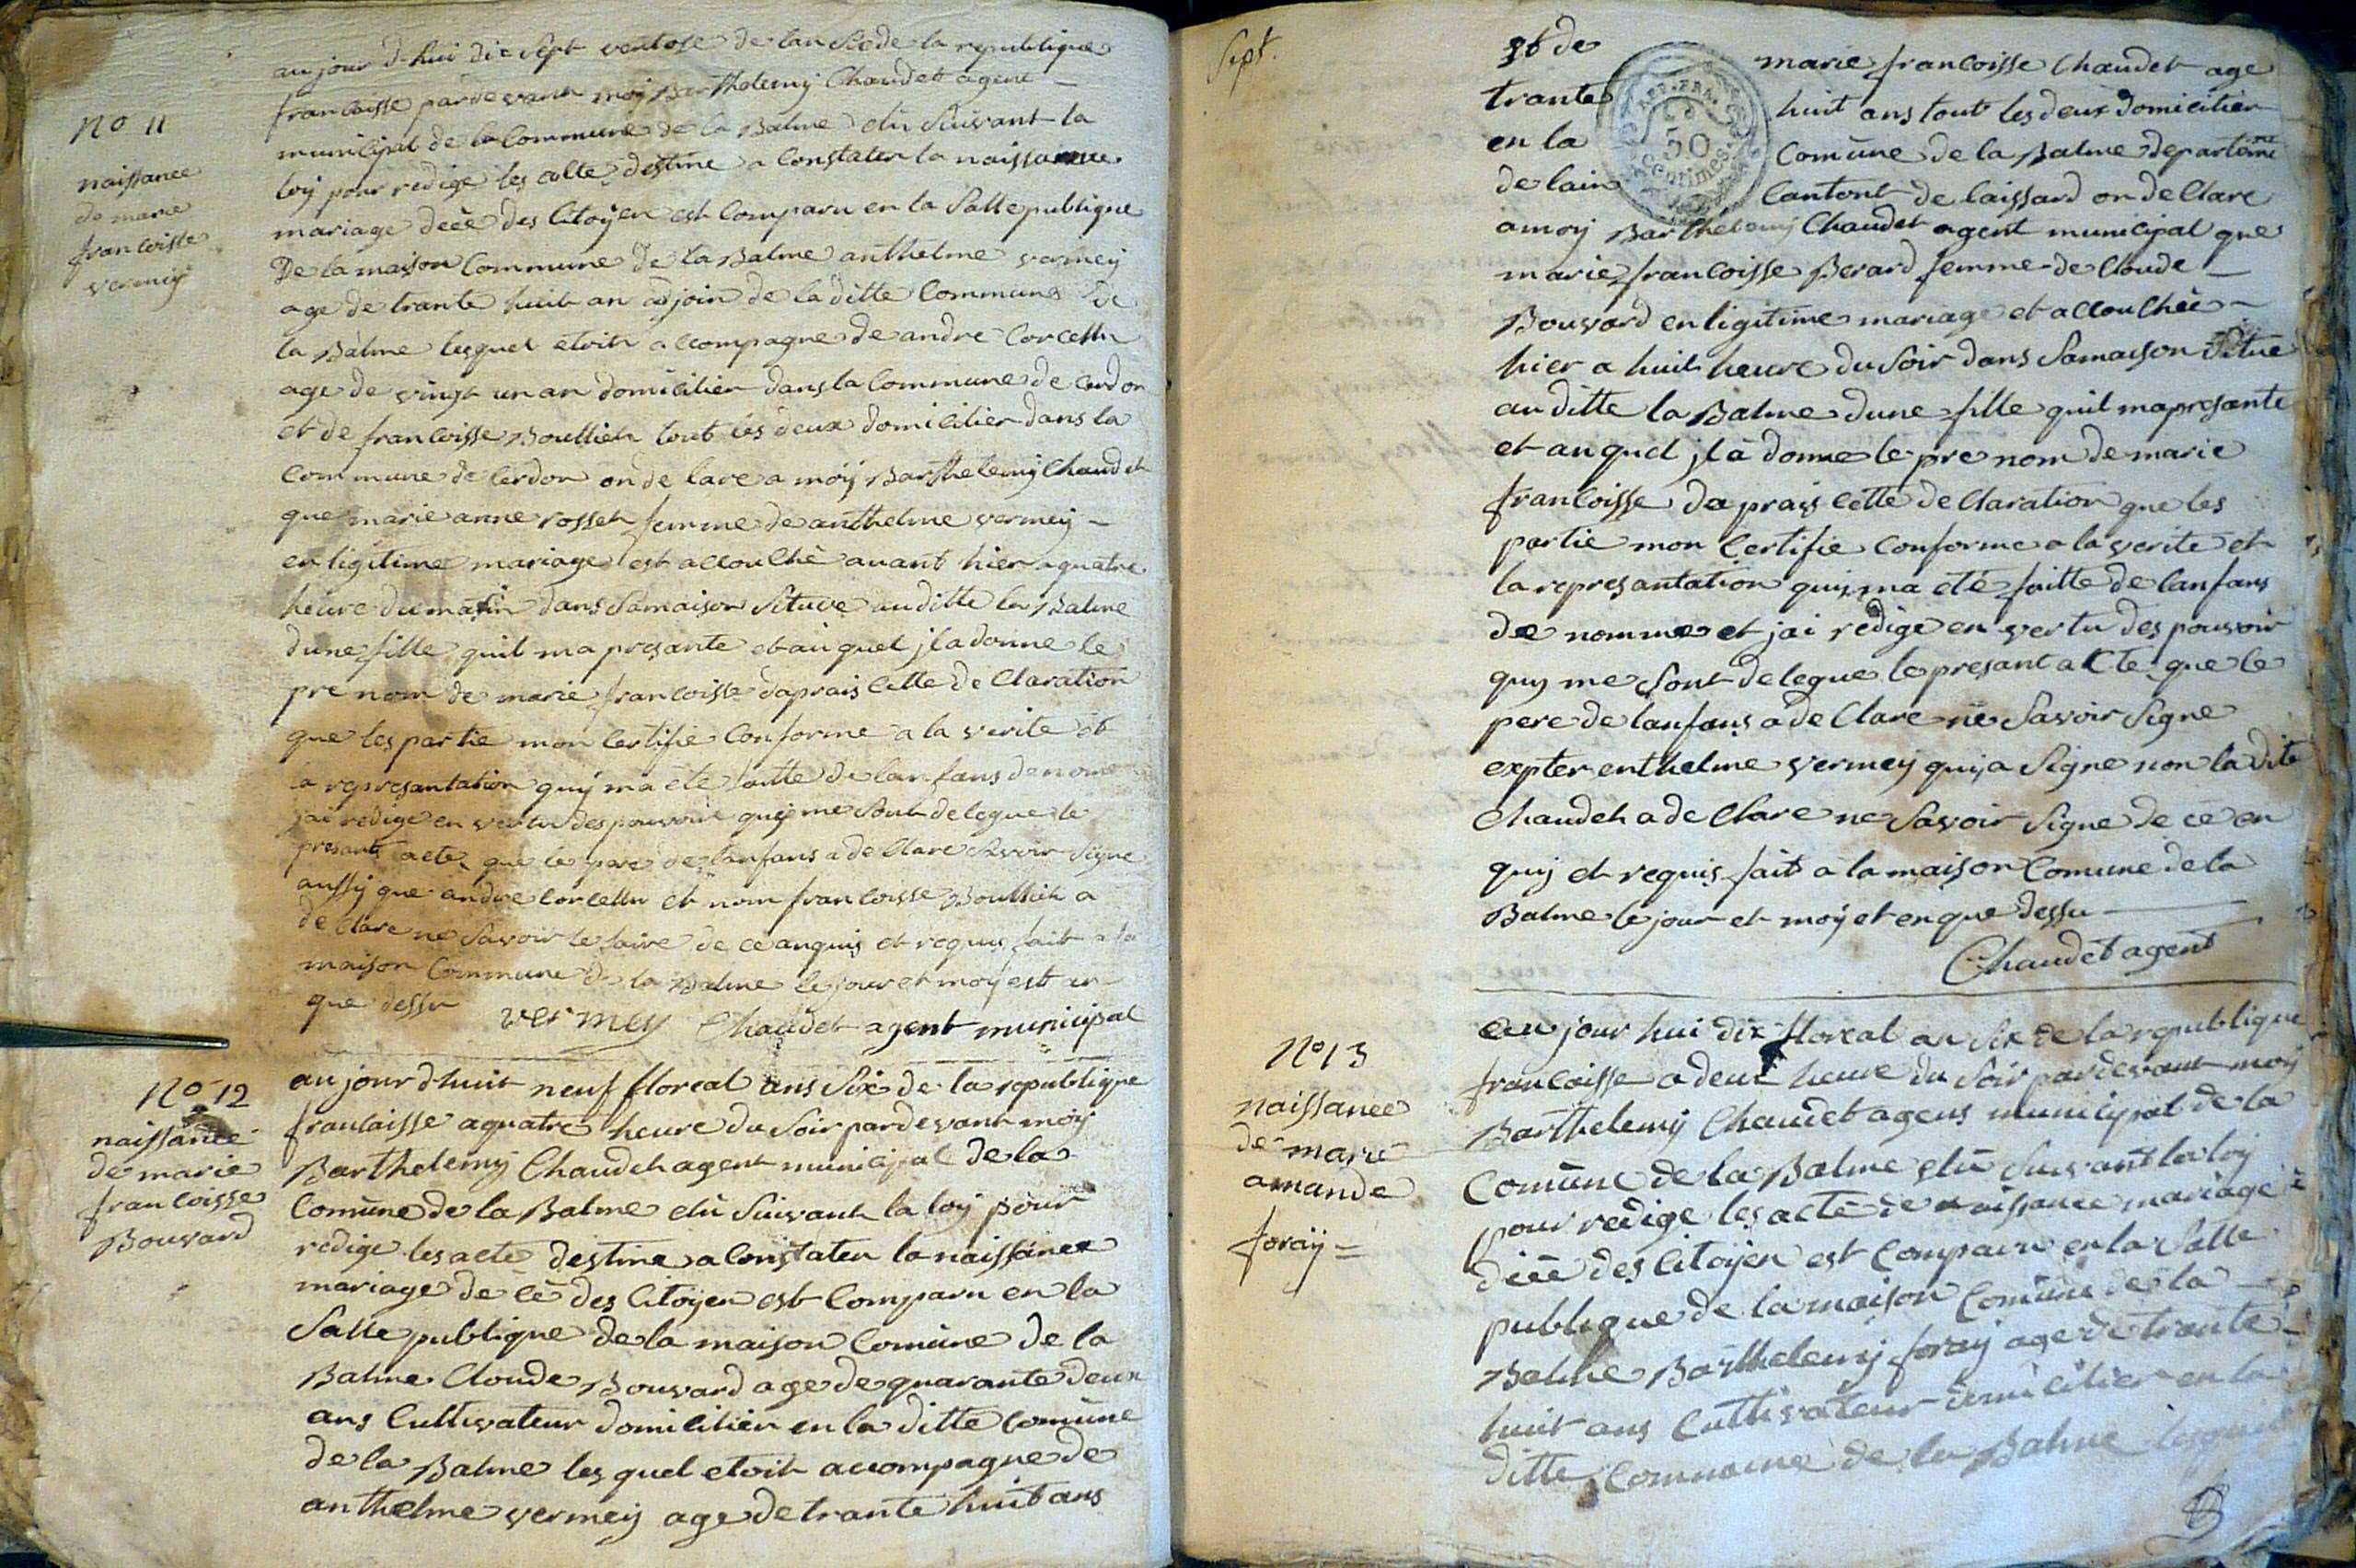 au jour d'hui dix sept ventose de lan six de la republique
francoisse pardevant moy Barthelemy Chaudet agent
municipal de la Commune de la Balme élu suivant la
loy pour redige les acte destine a Constater la naissance
mariage décè des Citoyen est Comparu en la Salle publique
De la maison Commune de la Balme anthelme vermey
age de trante huit an adjoin de la ditte Commune de
la Balme lesquel etoit accompagne de andre Corcellu
age de vingt un an domicilier dans la Commune de Cerdon
et de francoisse Boullieh tout les deux domicilier dans la
Commune de Cerdon on de Clare a moy Barthelemy Chaudet
que marie anne rosset femme de anthelme vermey
en ligitime mariage est accouché avant hier a quatre
heure du matin dans Samaison Situee au ditte la Balme
dune fille quil ma presante et auquel jl a donne le
pre nom de marie francoisse daprais Cette de Claration
que les partie mon Certifie Conforme a la verite et
la represantation quy ma été faitte de lanfans denome
jai redige en vertu des pouvoir quy me Sont delegue le
presant acte que le pere de lanfans a de Clare Savoir Signe
aussy que andre Corcellu et nom francoisse Boullieh a
de Clare ne Savoir le faire de ce anquis et requis fait a la
maison Commune de la Balme le jour et moy est en
que dessu
vermey Chaudet agent municipal
No 11
naissance
de marie
francoisse
vermey
No 12
naissance
de marie
francoisse
Bouvard
au jour d'huit neuf floreal ans Six de la republique
francaisse a quatre heure du Soir pardevant moy
Barthelemy Chaudet agent municipal de la
Comune de la Balme elu Suivant la loy pour
redige les acte destine a Constater la naissance
mariage de cè des Citoyen est Comparu en la
Salle publique de la maison Comune de la
Balme Cloude Bouvard age de quarante deux
ans Cultivateur domicilier en la ditte Comune
de la Balme les quel etoit accompagne de
anthelme vermey age de trante huit ans
Sept.
et de marie francoisse Chaudet age
trante huit ans tout les deux domicilier
en la Comune de la Balme departeme
de lain Cantont de laissard on de Clare
a moy Barthelemy Chaudet agent municipal que
marie francoisse Berard femme de Cloude
Bouvard en ligitime mariage et accouchée
hier a huit heure du Soir dans Samaison Situe
au ditte la Balme dune fille quil ma presante
et auquel jl a donne le pre nom de marie
francoisse da prais Cette de Claration que les
partie mon Certifie Conforme a la verite et
la represantation quy ma eté faitte de lanfans
de nomme et jai redige en vertu des pouvoir
quy me Sont delegue le presant acte que le
pere de lanfans a de Clare ne Savoir Signe
expter enthelme vermey quy a Signe non la dite
Chaudet a de Clare ne Savoir Signe de ce en
quy et requis fait a la maison Comune de la
Balme le jour et moy et en que dessu
Chaudet agent
REP. FRA.
50
Centimes.
No 13
naissance
de marie
amande
foray =
au jour hui dix floreal an Six de la republique
francaisse a deux heure du Soir pardevant moy
Barthelemy Chaudet agens municipal de la
Comune de la Balme elu Suivant la loy
pour redige les acte de naissance mariage é
décé des Citoyen est Comparu en la Salle
publique de la maison Comune de la
Balme Barthelemy foray age de trante
huit ans Cultivateur domicilier en la
ditte Commune de la Balme lesquel